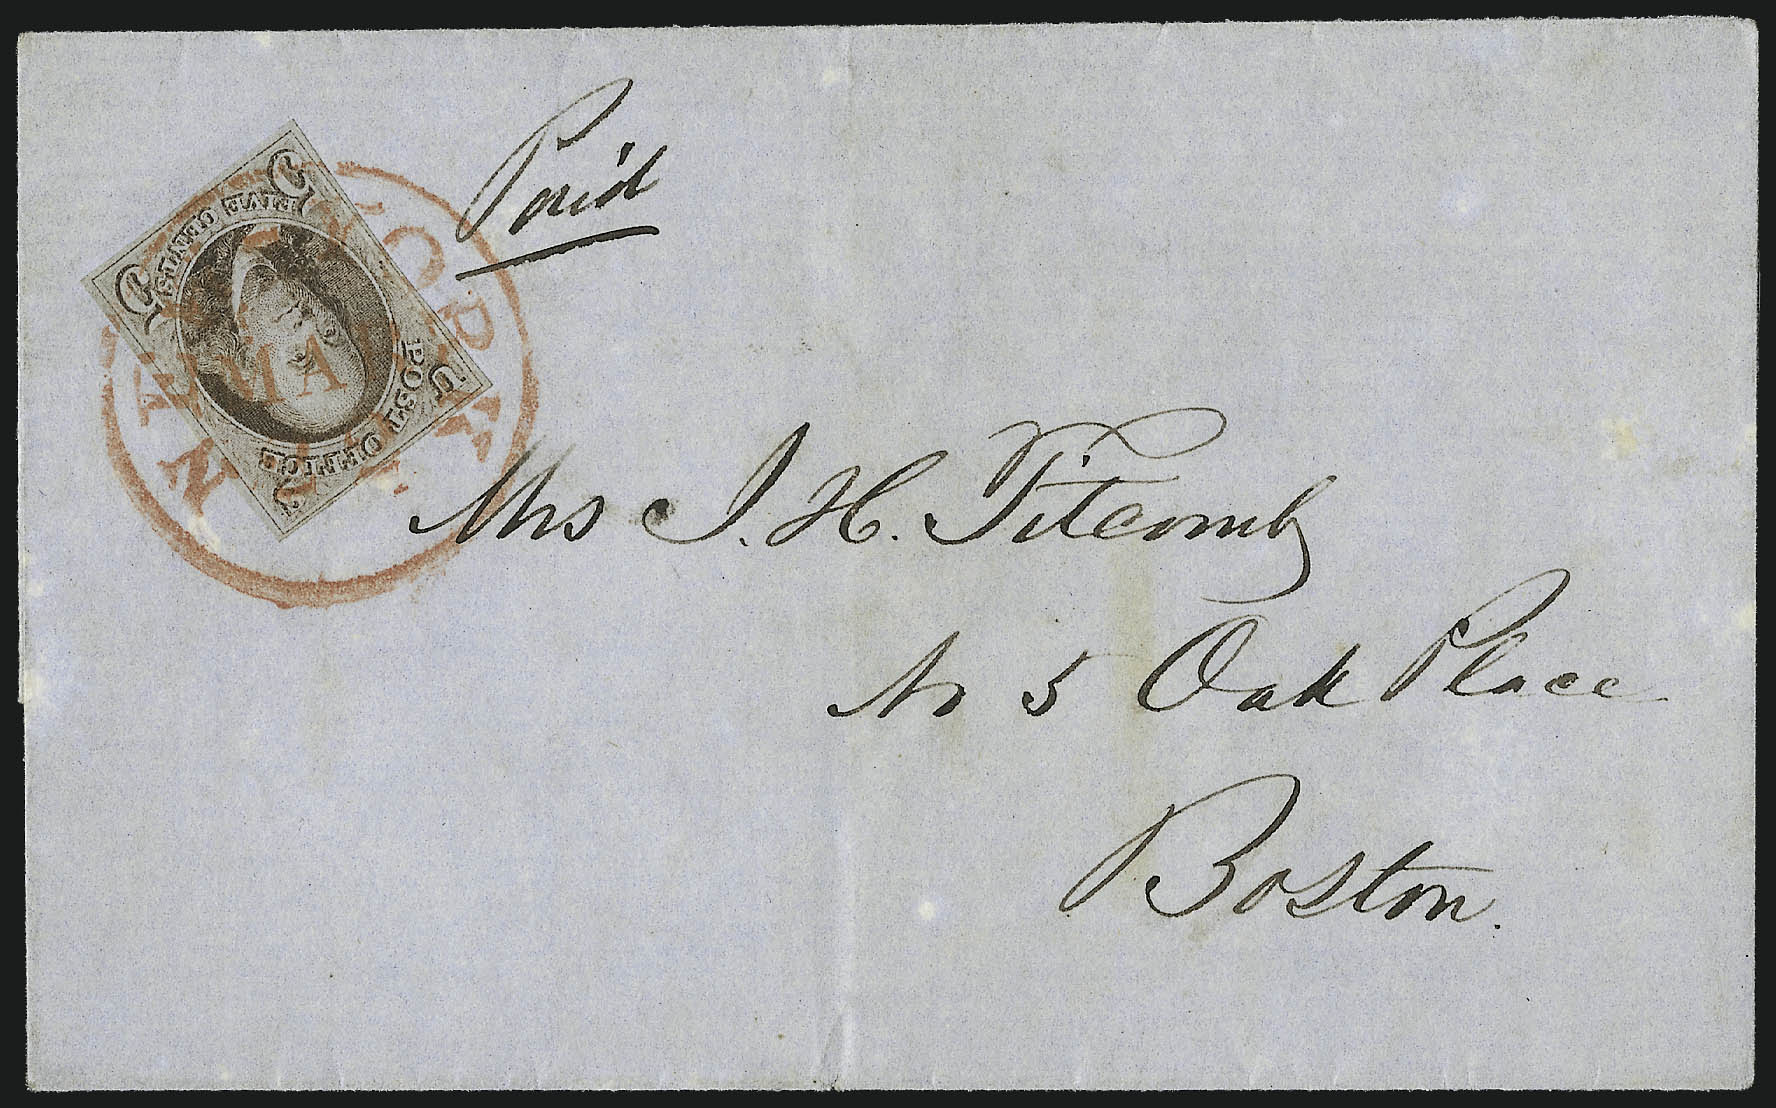 Paid
5 5
FIVE CENTS
POST OFFICE
U S
MAR
Mrs J. H. Titcomb
No 5 Oak Place
Boston.